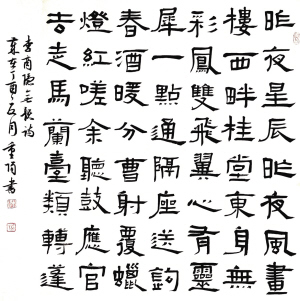 昨夜星辰昨夜風畫
樓西畔桂堂東身無
彩鳳雙飛翼心有靈
犀一點通隔座送鉤
春酒暖分曹射覆蠟
燈紅嗟余聽鼓應官
去走馬蘭臺類轉蓬
李商隐无题詩
丁酉五月書